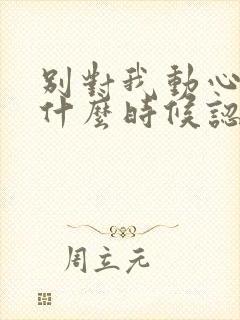 別對我動心
什麼時候認
周立元